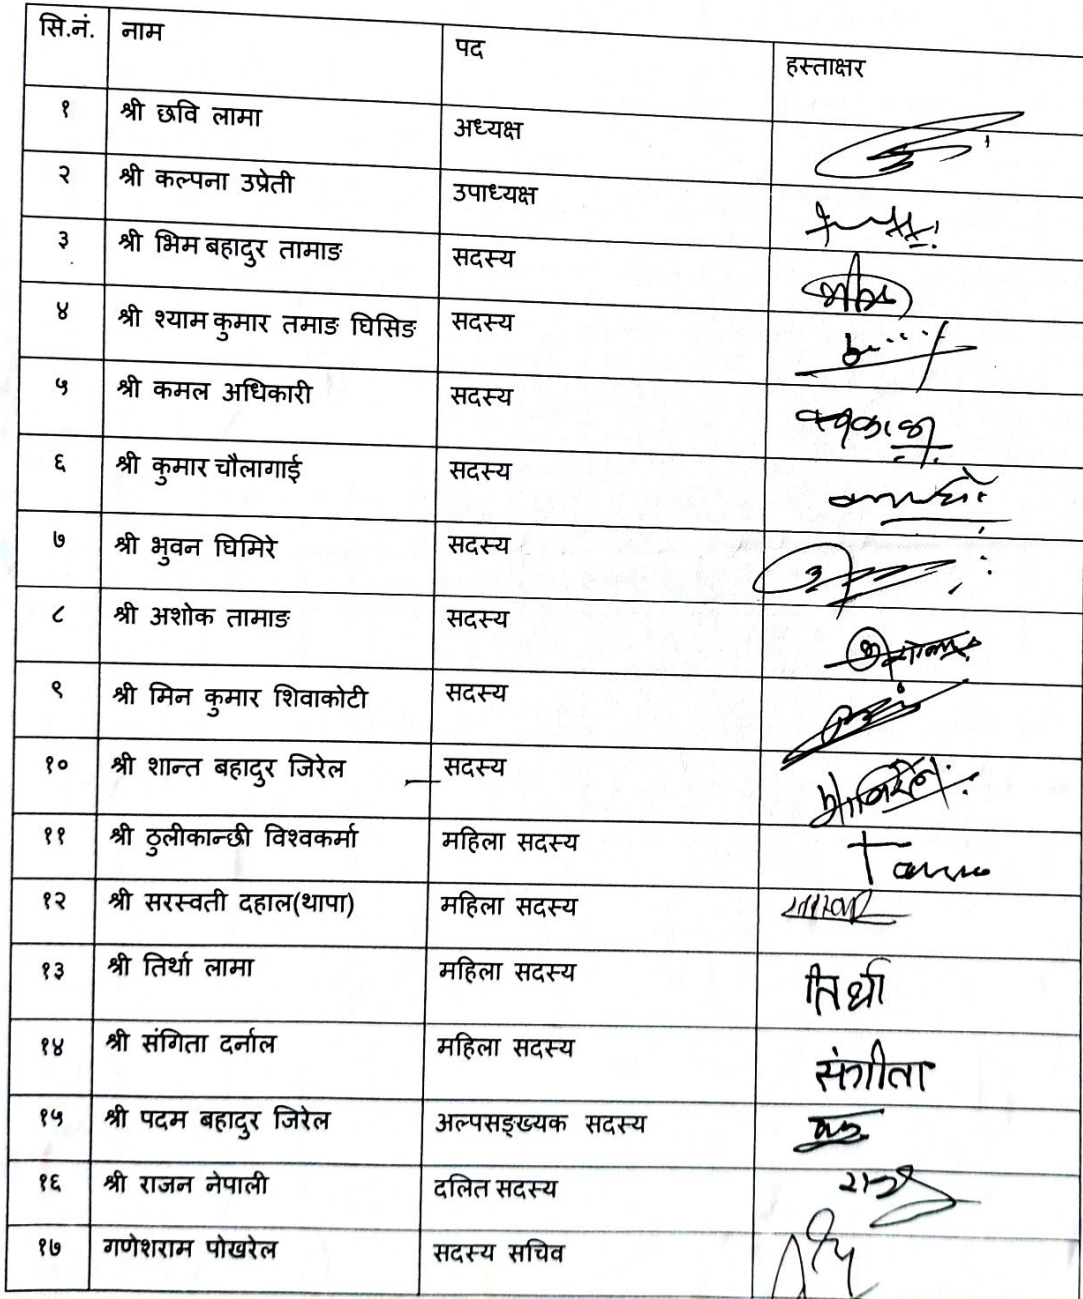 सि.नं. नाम पद हस्ताक्षर
१ श्री छवि लामा अध्यक्ष
२ श्री कल्पना उप्रेती उपाध्यक्ष
३ श्री भिम बहादुर तामाङ सदस्य
४ श्री श्याम कुमार तमाङ घिसिङ सदस्य
५ श्री कमल अधिकारी सदस्य
६ श्री कुमार चौलागाई सदस्य
७ श्री भुवन घिमिरे सदस्य
८ श्री अशोक तामाङ सदस्य
९ श्री मिन कुमार शिवाकोटी सदस्य
१० श्री शान्त बहादुर जिरेल सदस्य
११ श्री ठुलीकान्छी विश्वकर्मा महिला सदस्य
१२ श्री सरस्वती दहाल(थापा) महिला सदस्य
१३ श्री तिर्था लामा महिला सदस्य तिर्था
१४ श्री संगिता दर्नाल महिला सदस्य संगीता
१५ श्री पदम बहादुर जिरेल अल्पसङ्ख्यक सदस्य
१६ श्री राजन नेपाली दलित सदस्य
१७ गणेशराम पोखरेल सदस्य सचिव